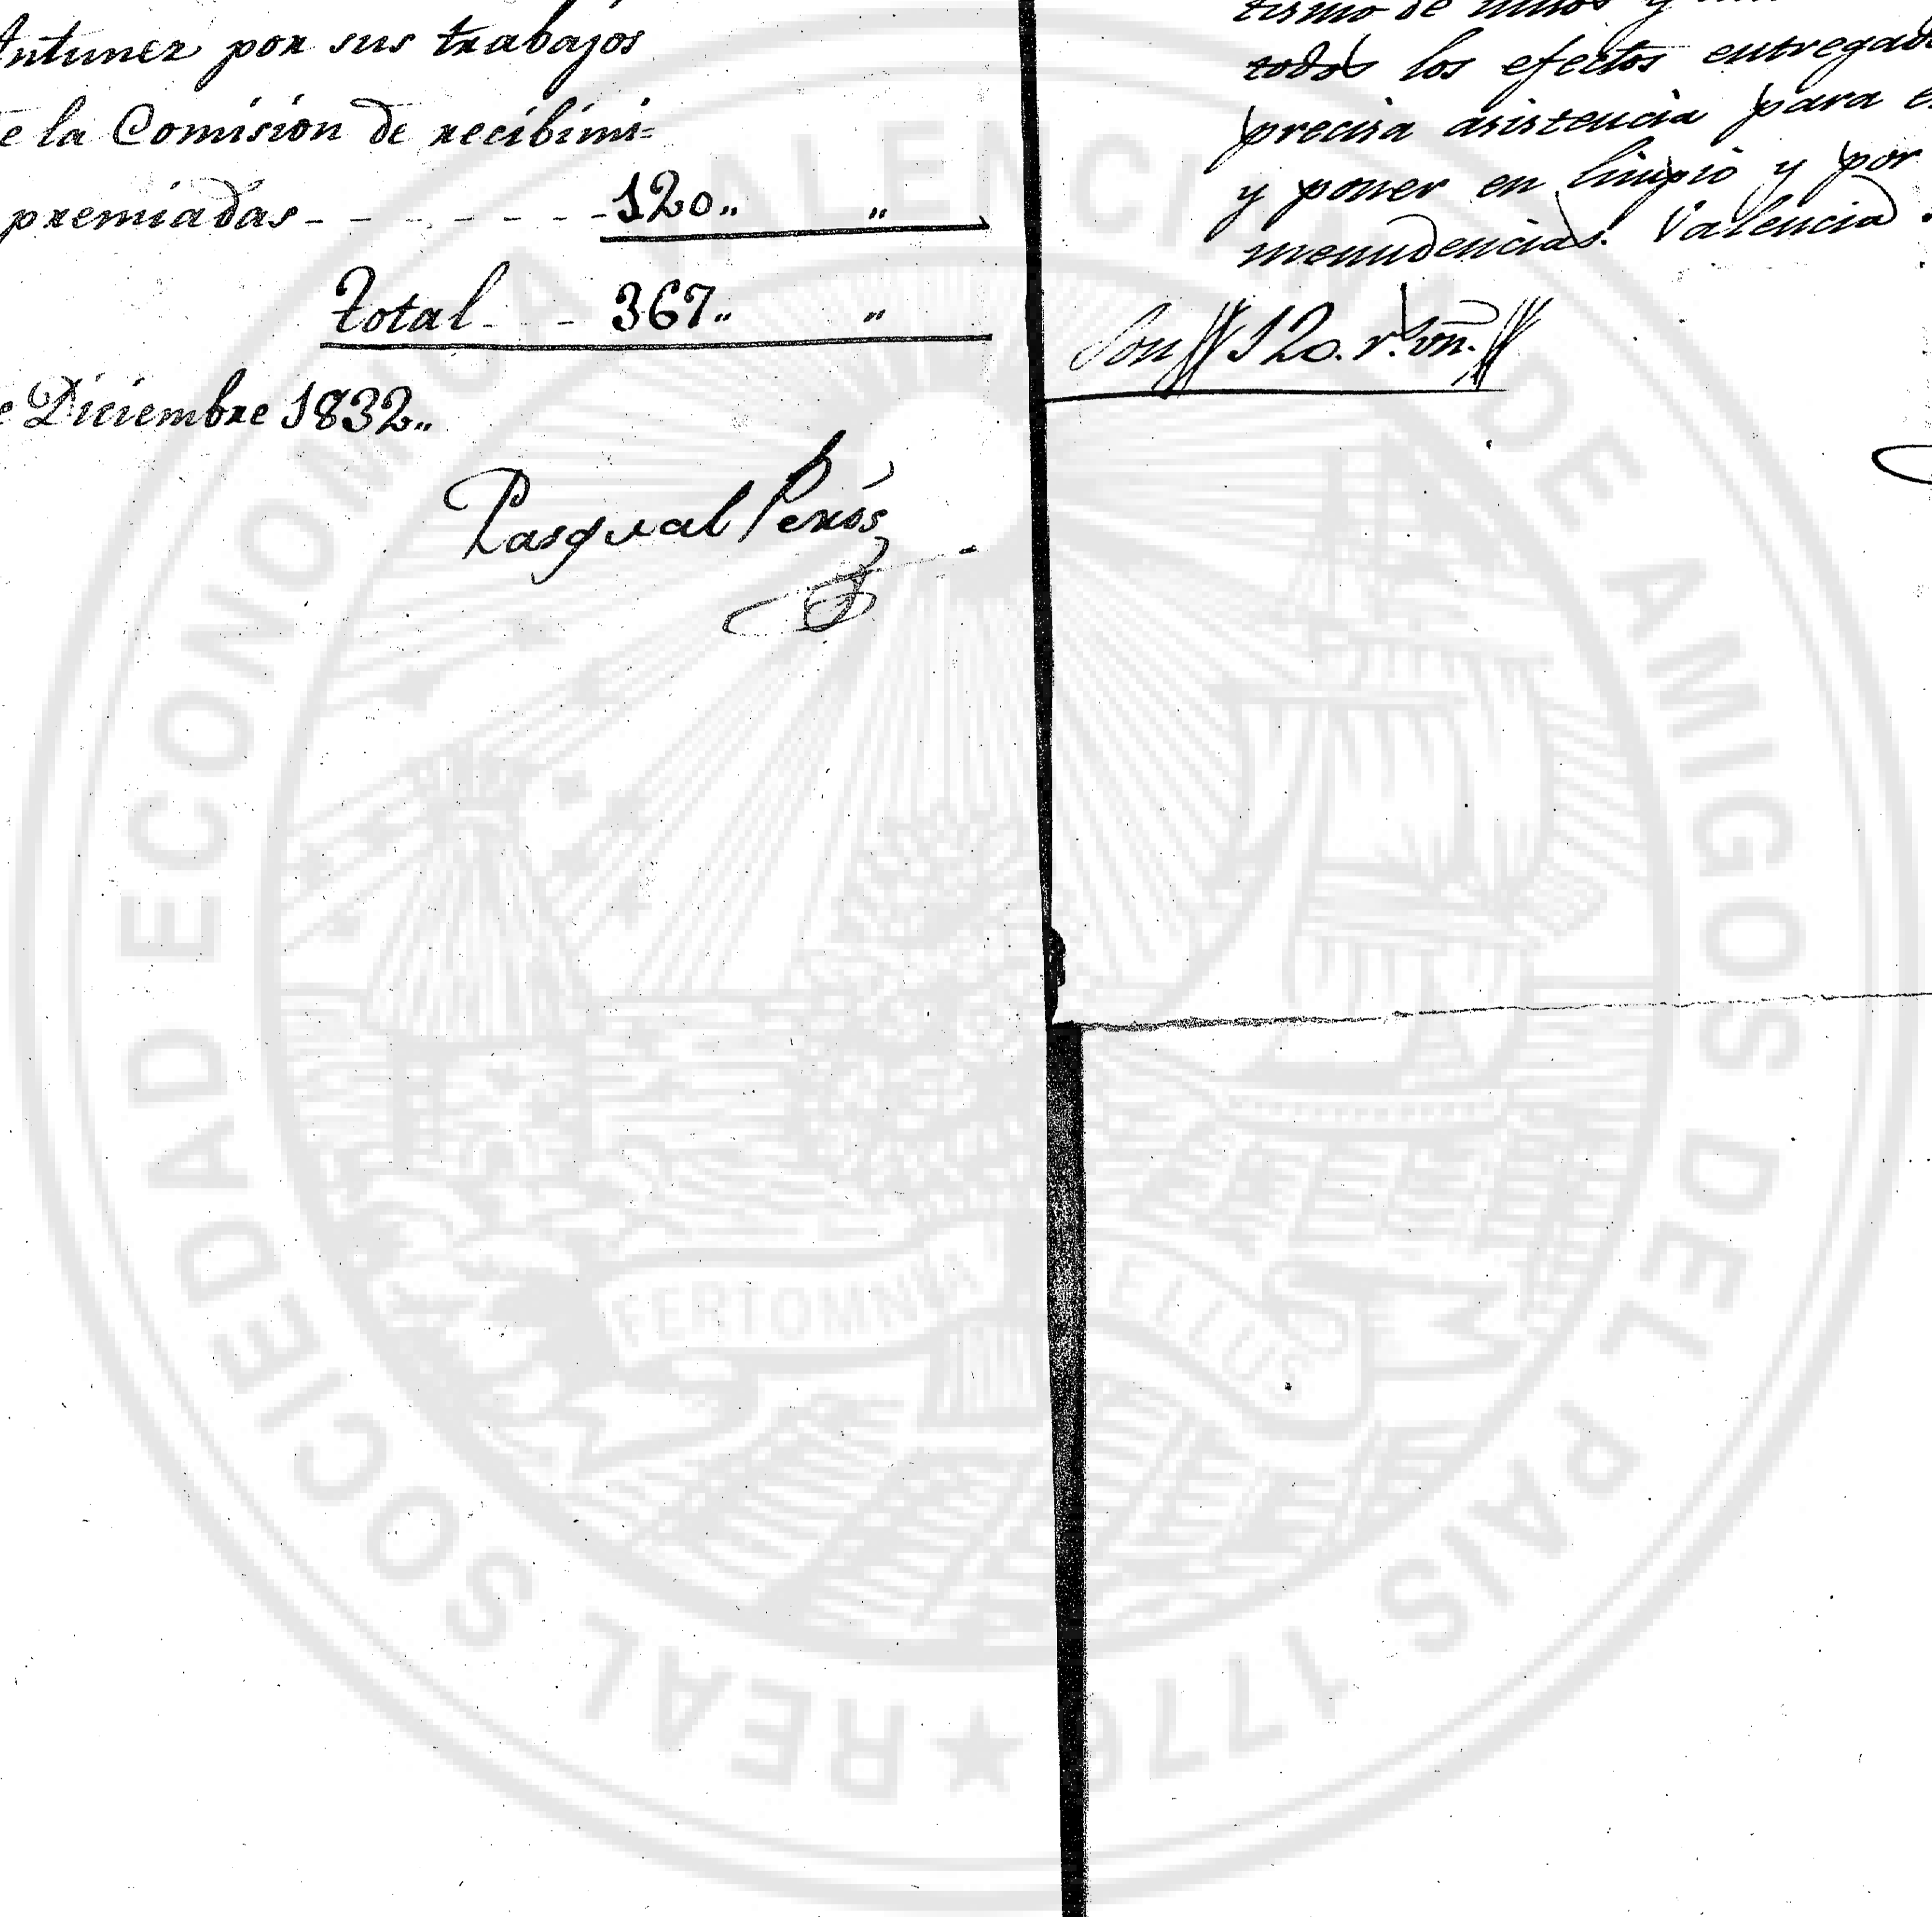 Antunez por sus trabajos
e la Comision de recibimi=
premiadas - - - - - - - 120,, ,,
Total - - 367,, ,,
e Diciembre 1832,,
Pasqual Perís
tismo de niños y
todos los efectos entregad
precisa asistencia para e
y poner en limpio y por
menudencias. Valencia
Son 120. r.s vn.
REAL SOCIEDAD ECONOMICA VALENCIANA DE AMIGOS DEL PAIS 1776
FERT OMNIA TELLUS